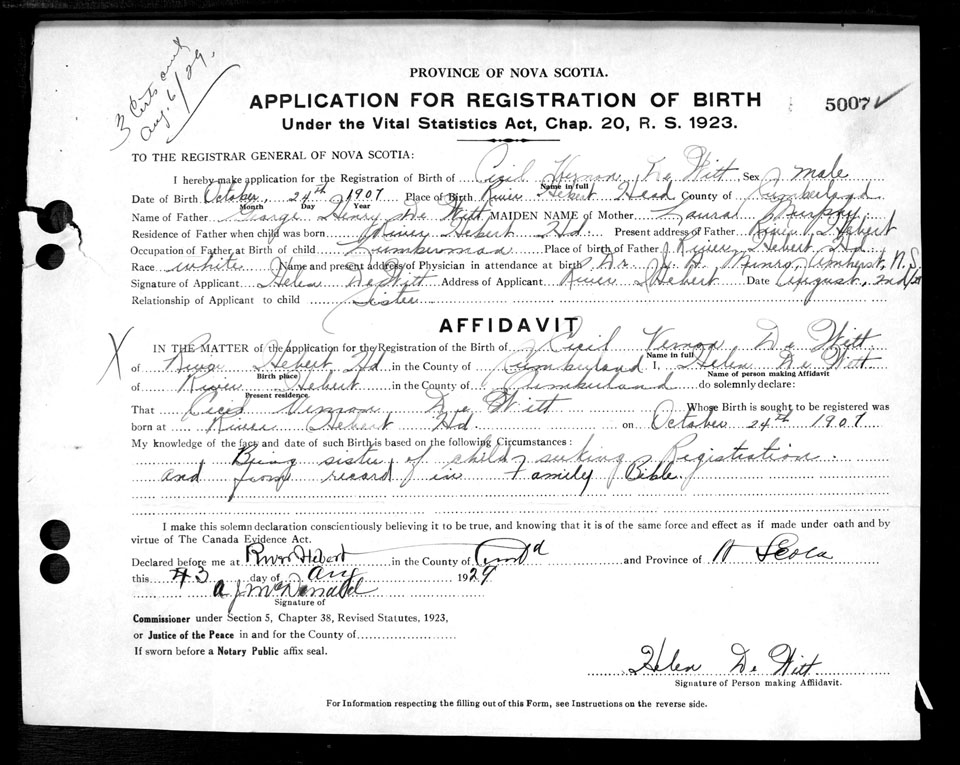 3 Certs
Aug. 6/29.
PROVINCE OF NOVA SCOTIA.
APPLICATION FOR REGISTRATION OF BIRTH
5007
Under the Vital Statistics Act, Chap. 20, R. S. 1923.
TO THE REGISTRAR GENERAL OF NOVA SCOTIA:
I hereby make application for the Registration of Birth of Cecil Vernon De Witt Sex male
Name in full
Date of Birth October 24th 1907 Place of Birth River Hebert Head County of Cumberland
Month Day Year
Name of Father George Henry De Witt MAIDEN NAME of Mother Laura Murphy
Residence of Father when child was born River Hebert Hd. Present address of Father River Hebert
Occupation of Father at Birth of child Lumberman Place of birth of Father River Hebert Hd.
Race white Name and present address of Physician in attendance at birth Dr. Munro, Amherst, N.S.
Signature of Applicant Helen DeWitt Address of Applicant River Hebert Date August, 2nd/29
Relationship of Applicant to child Sister
AFFIDAVIT
X
IN THE MATTER of the application for the Registration of the Birth of Cecil Vernon De Witt
Name in full
of River Hebert Hd in the County of Cumberland I, Helen De Witt
Birth place Name of person making Affidavit
of River Hebert in the County of Cumberland do solemnly declare:
Present residence
That Cecil Vernon De Witt Whose Birth is sought to be registered was
born at River Hebert Hd. on October 24th 1907
My knowledge of the fact and date of such Birth is based on the following Circumstances:
Being sister of child seeking Registration.
and from record in Family Bible.
I make this solemn declaration conscientiously believing it to be true, and knowing that it is of the same force and effect as if made under oath and by
virtue of The Canada Evidence Act.
Declared before me at River Hebert in the County of Cumd and Province of N Scotia
this 3 day of Aug 1929
A J McDonald
Signature of
Commissioner under Section 5, Chapter 38, Revised Statutes, 1923,
or Justice of the Peace in and for the County of
If sworn before a Notary Public affix seal.
Helen De Witt
Signature of Person making Affiidavit.
For Information respecting the filling out of this Form, see Instructions on the reverse side.